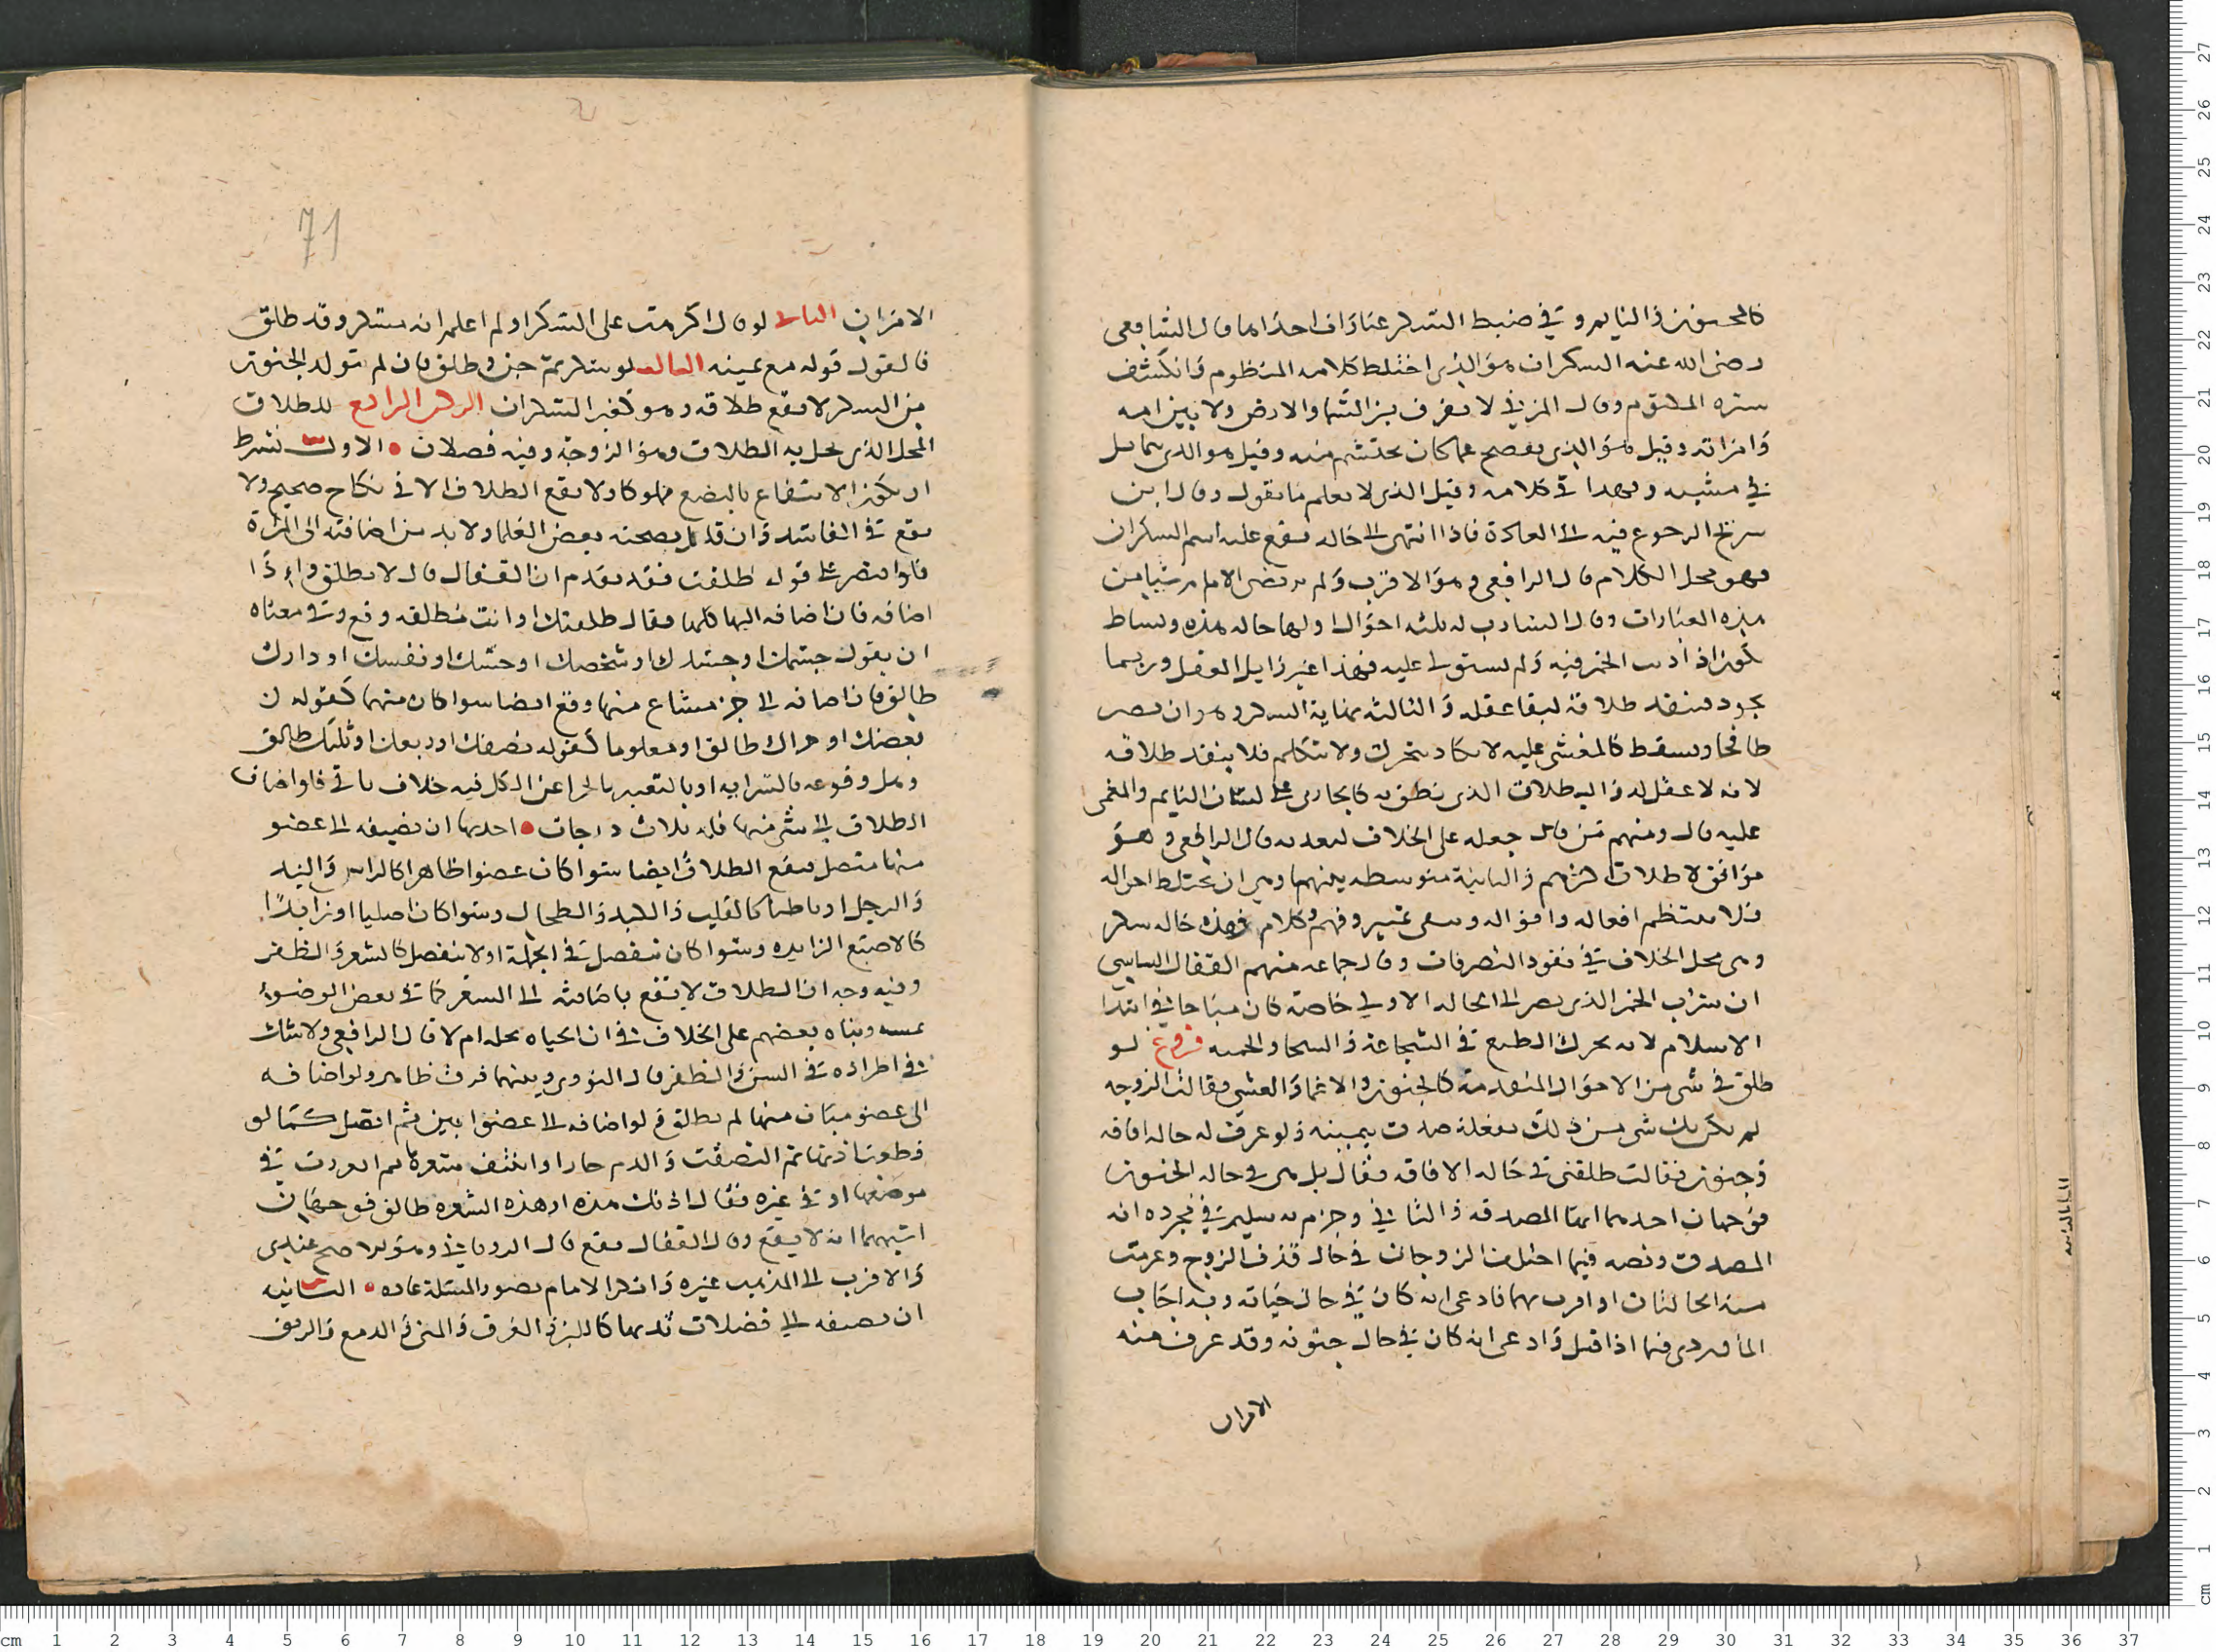 كالمجنون والنايم وفي ضبط السكر عبارات احداها قال الشافعي
رضي الله عنه السكران هو الذي اختلط كلامه المنظوم وانكشف
سره المكتوم وقال المزني لا يعرف بين السما والارض ولا بين امه
وامراته وقيل هو الذي يفصح عما كان يحتشم منه وقيل هو الذي يتمايل
في مشيه ويهدا في كلامه وقيل الذي لا يعلم ما يقول وقال ابن
سريج الرجوع فيه الى العادة فاذا انتهى الى حاله يقع عليه اسم السكران
فهو محل الكلام قال الرافعي وهو الاقرب ولم يرتض الامام شيا من
هذه العبارات وقال الشارب له ثلثه احوال اولها حاله هذه ونشاط
يكون اذا دب الخمر فيه ولم يستول عليه فهذا غير زايل العقل وربما
يجود فينفد طلاقه لبقا عقله والثالثه نهاية السكر وهو ان يصير
طافحا ويسقط كالمغشي عليه لا يكاد يتحرك ولا يتكلم فلا ينفد طلاقه
لانه لا عقل له والطلاق الذي نطق به كالجاري على لسان النايم والمغمى
عليه قال ومنهم من جعله على الخلاف لتعديه قال الرافعي وهو
موافق لاطلاق اكثرهم والثانية متوسطه بينهما وهي ان يختلط احواله
فلا ينتظم افعاله واقواله ويبقى تمييز وفهم وكلام فهذه حاله سكر
وهي محل الخلاف في نفود التصرفات وقال جماعه منهم القفال الشاشي
ان شرب الخمر الذي يصير الى الحاله الاولى خاصة كان مباحا في ابتدا
الاسلام لانه يحرك الطبع في الشجاعة والسخا والحميه فروع لو
طلق في شي من الاحوال المتقدمة كالجنون والاغما والغشي فقالت الزوجه
لم يكن بك شي من ذلك صدق بيمينه ولو عرف له حاله افاقه
وجنون فقالت طلقتني في حاله الافاقه فقال بل هي في حاله الجنون
فوجهان احدهما انها المصدقه والثاني وجزم به سليم في مجرده انه
المصدق ونصه فيما اختلف الزوجان في حال قذف الزوج وعرفت
منه الحالتان او اقرب بهما فادعى انه كان في حال حياته وبه اجاب
الماوردي فيما اذا قتل وادعى انه كان في حال جنونه وقد عرف منه
الامران
71
الامران الثاني لو قال اكرهت على السكر او لم اعلم انه مسكر وقد طلق
فالقول قوله مع يمينه الثالث لو سكر ثم جن وطلق فان لم تتولد الجنون
من السكر لا يقع طلاقه وهو كغير السكران الركن الرابع للطلاق
المحل الذي يحل به الطلاق وهو الزوجة وفيه فصلان الاول شرط
ان يكون الانتفاع بالبضع مملوكا ولا يقع الطلاق الا في نكاح صحيح ولا
يقع في الفاسد وان قال بصحته بعض العلما ولا بد من اضافته الى المراة
فلو اقتصر على قوله طلقت فقد تقدم ان القفال قال لا تطلق واذا
اضافه فان اضافه اليها كلها فقال طلقتك او انت مطلقه وقع وفي معناه
ان يقول جسمك او جسدك او شخصك او جثتك او نفسك او دارك
طالق فان اضافه الى جزء مشاع منها وقع ايضا سوا كان منهما كقوله
بعضك او جزاك طالق او معلوما كقوله نصفك او ربعك او ثلثك طالق
وهل وقوعه بالسرايه او بالتعبير بالجزا عن الكل فيه خلاف ياتي فلو اضاف
الطلاق الى شي منها فله ثلاث درجات احدها ان يضيفه الى عضو
منها متصل فيقع الطلاق ايضا سوا كان عضوا ظاهرا كالراس واليد
والرجل او باطنا كالقلب والكبد والطحال وسوا كان اصليا او زايدًا
كالاصبع الزايده وسوا كان ينفصل في الجملة او لا ينفصل كالشعر والظفر
وفيه وجه ان الطلاق لا يقع باضافته الى الشعر كما في نقض الوضوء
بمسه وبناه بعضهم على الخلاف في ان الحياه تحله ام لا قال الرافعي ولا شك
في اطراده في السن والظفر قال النووي وبينهما فرق ظاهر ولو اضافه
الى عضو مبان منها لم تطلق ولو اضافه الى عضو ابين ثم اتصل كما لو
قطعت اذنها ثم التصقت والدم حار او انتف شعره ثم انغرزت في
موضعها او في غيره فقال اذنك هذه او هذه الشعره طالق فوجهان
اشبههما انه لا يقع وقال القفال يقع قال الروياني وهو الاصح عندي
والاقرب الى المذهب غيره وانكر الامام تصور المسئلة عاده الثانيه
ان يضيفه الى فضلات بدنها كاللبن والعرق والمني والدمع والريق